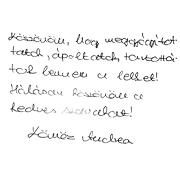 Köszönöm, hogy meggyógyítot-
tatok, ápoltatok, tartottá-
tok bennem a lelket!
Hálásan köszönöm a
kedves szavakat!
Vörös Andrea